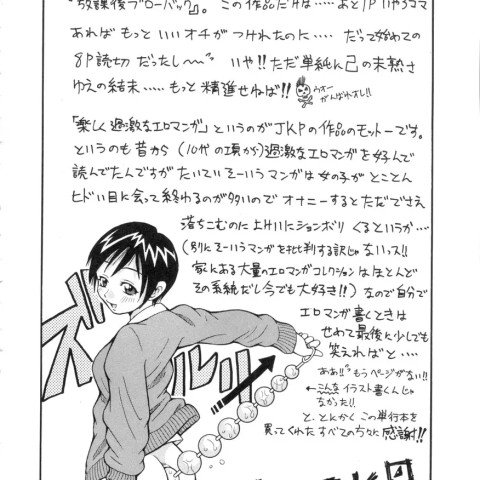 『放課後ブローバック』。 この作品だけは……あと1P いや3コマ
あれば もっと いい オチが つけれたのに…… だって 始めての
8P読切 だったし〜〜 いや!! ただ単純に己の未熟さ
ゆえの結末…… もっと 精進せねば!! ウオー がんばれオレ!!
「楽しく過激なエロマンガ」というのがJKPの作品のモットーです。
というのも昔から (10代の頃から)過激なエロマンガを好んで
読んでたんですが たいてい そーいう マンガは 女の子が とことん
ヒドい目に会って終わるのが多いので オナニーすると ただでさえ
落ちこむのに 上にションボリ くるというか…
(別に そーいうマンガを批判する訳じゃ ないっス!!
家にある大量のエロマンガコレクションは ほとんど
その系統だし今でも大好き!!) なので自分で
エロマンガ 書くときは
せめて最後に少しでも
笑えればと……
ああ!! もう ページがない!!
←こんな イラスト書くんじゃ
なかった!!
と、とにかく この単行本を
買ってくれた すべての方々に 感謝!!
ズルルリ